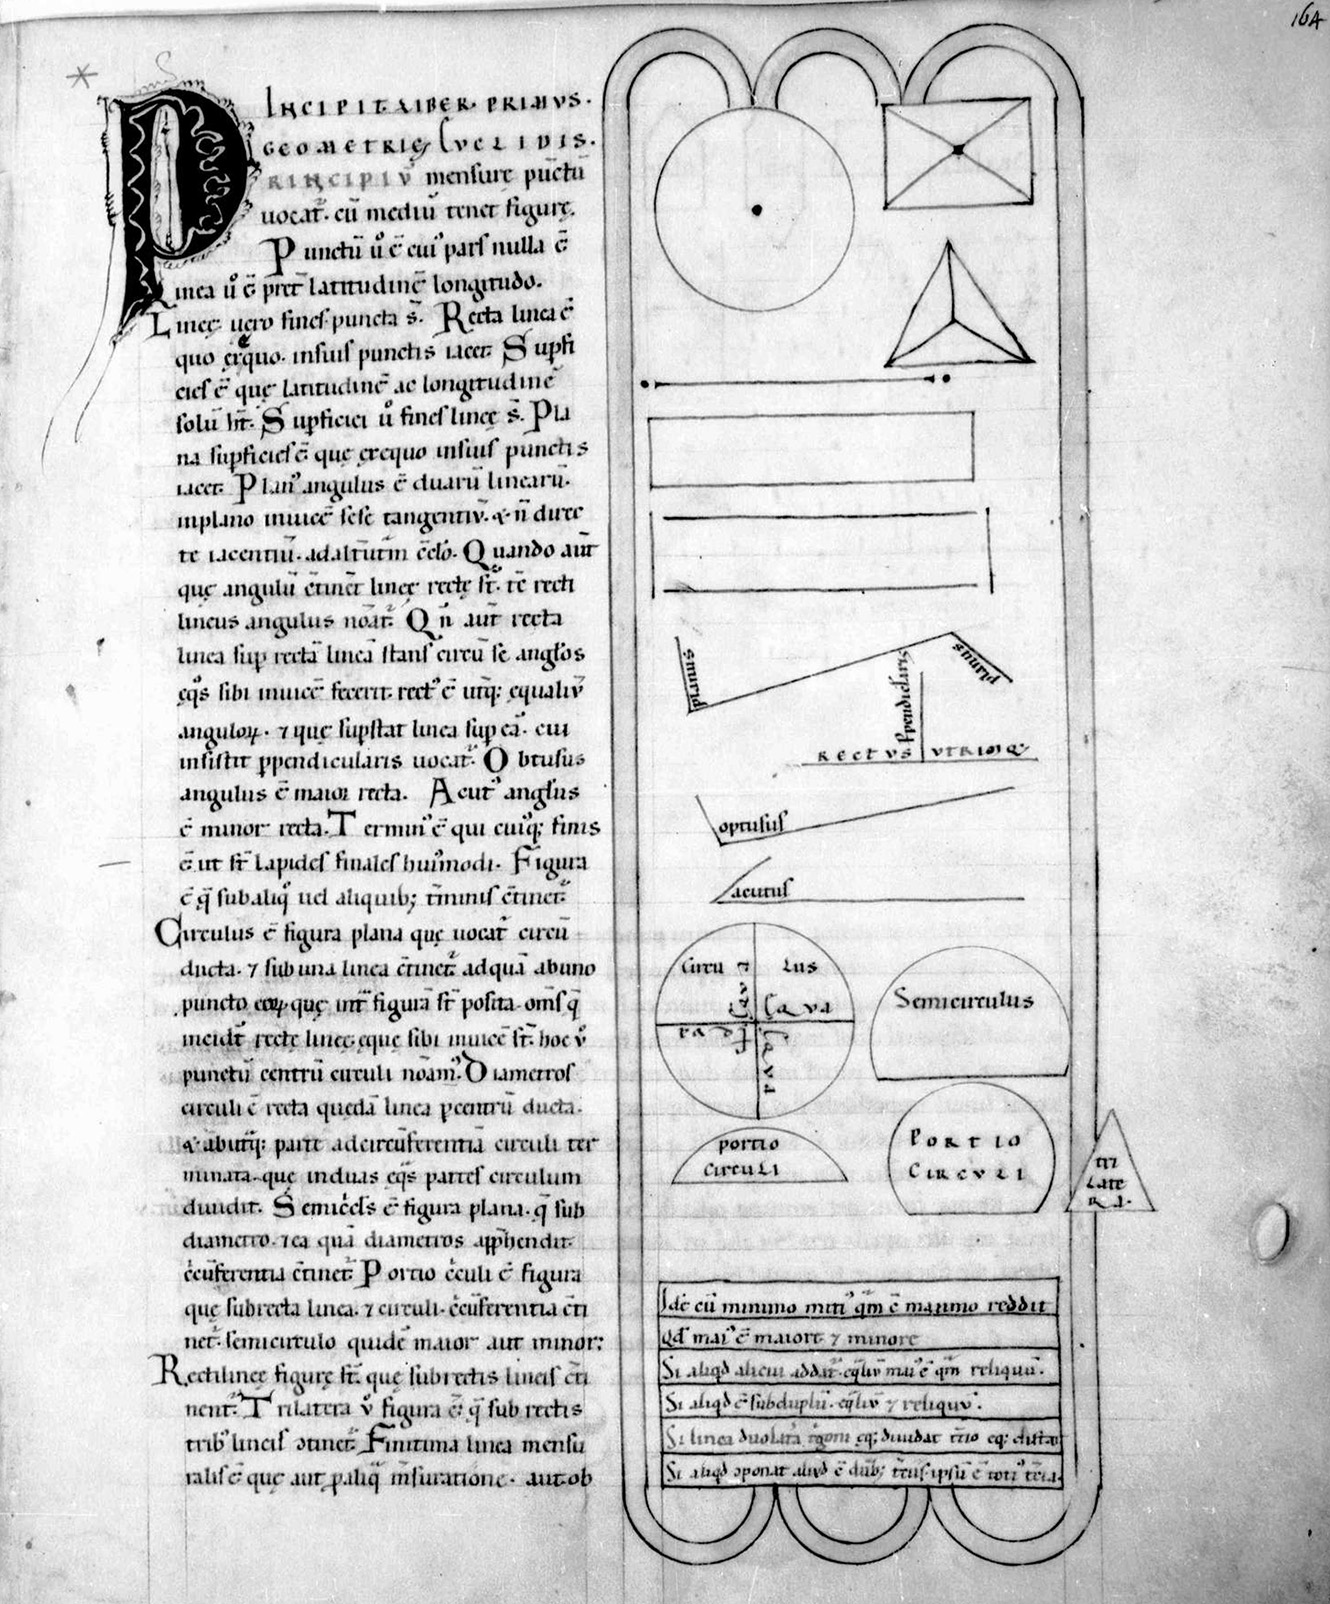 164
INCIPIT LIBER PRIMVS.
GEOMETRIĘ EVCLIDIS.
PRINCIPIṼ mensurę pũctũ
uocat᷑. cũ mediũ tenet figurę.
Punctũ ů ẽ cui᾽ pars nulla ẽ
Linea ů ẽ pręt̃ latitudinẽ longitudo.
Lineę uero fines puncta s̃. Recta linea ẽ
quo ęrequo. insuis punctis iacet. Supfi
cies ẽ quę latitudinẽ ac longitudinẽ
solũ h̃t. Supficiei ů fines lineę s̃. Pla
na supficies ẽ quę ęrequo insuis punctis
iacet. Plan᾽ angulus ẽ duarũ linearũ.
inplano inuicẽ sese tangentiũ. & ñ direc
te iacentiũ. adalt̃utr̃m c̃clo. Quando aũt
quę angulũ c̃tinẽt lineę rectę s̃t. t̃c recti
lineus angulus noãt᷑. Qñ aũt recta
linea sup rectã lineã stans circũ se anglos
ęq̃s sibi inuicẽ fecerit. rect᾽ ẽ utq; ęqualiũ
anguloꝝ. ⁊ quę supstat linea sup eã. cui
insistit ppendicularis uocat᷑. Obtusus
angulus ẽ maior recta. Acut᾽ anglus
ẽ minor recta. Termin᾽ ẽ qui cui᾽q; finis
ẽ. ut s̃t lapides finales hui᾽modi. Figura
ẽ q̃ subaliq̊ uel aliquib; t̃minis c̃tinet᷑.
Circulus ẽ figura plana quę uocat᷑ circũ
ducta. ⁊ sub una linea c̃tinet᷑. ad quã abuno
puncto eoꝝ quę int̃ figurã s̃t posita. om̃s q̃
incidt̃ rectę lineę. ęquę sibi inuicẽ s̃t. hoc v̊
punctũ centrũ circuli noãm᾽. Diametros
circuli ẽ recta quędã linea pcentrũ ducta.
& abutq; parte adcircũferentiã circuli ter
minata. quę induas ęq̃s partes circulum
diuidit. Semic̃cls ẽ figura plana. q̃ sub
diametro. ⁊ea quã diametros app̃hendit.
c̃cũferentia c̃tinet᷑. Portio c̃culi ẽ figura
quę subrecta linea. ⁊ circuli. c̃cũferentia c̃ti
net᷑. semicirculo quidẽ maior aut minor;
Rectilineę figurę s̃t. quę subrectis lineis c̃ti
nent᷑. Trilatera v̊ figura ẽ. q̃ sub rectis
trib᾽ lineis ɔtinet᷑. Finitima linea mensu
ralis ẽ quę aut paliq̃ m̃suratione. aut ob
planus
planus
Ppendiclaris
RECTVS VTRIQ;
optusus
acutus
Circu lus
Semicirculus
PORTIO
CIRCULI
PORTIO
CIRCVLI
TRI
LATE
RA.
Idẽ cũ minimo
Qđ mai᾽ ẽ maiore ⁊ minore
Si aliqđ alicui addat᷑ ęqliũ mai᾽ ẽ q̃m reliquũ.
Si aliqđ ẽ subduplũ. ęqliũ ⁊ reliquũ.
Si linea
Si aliqđ